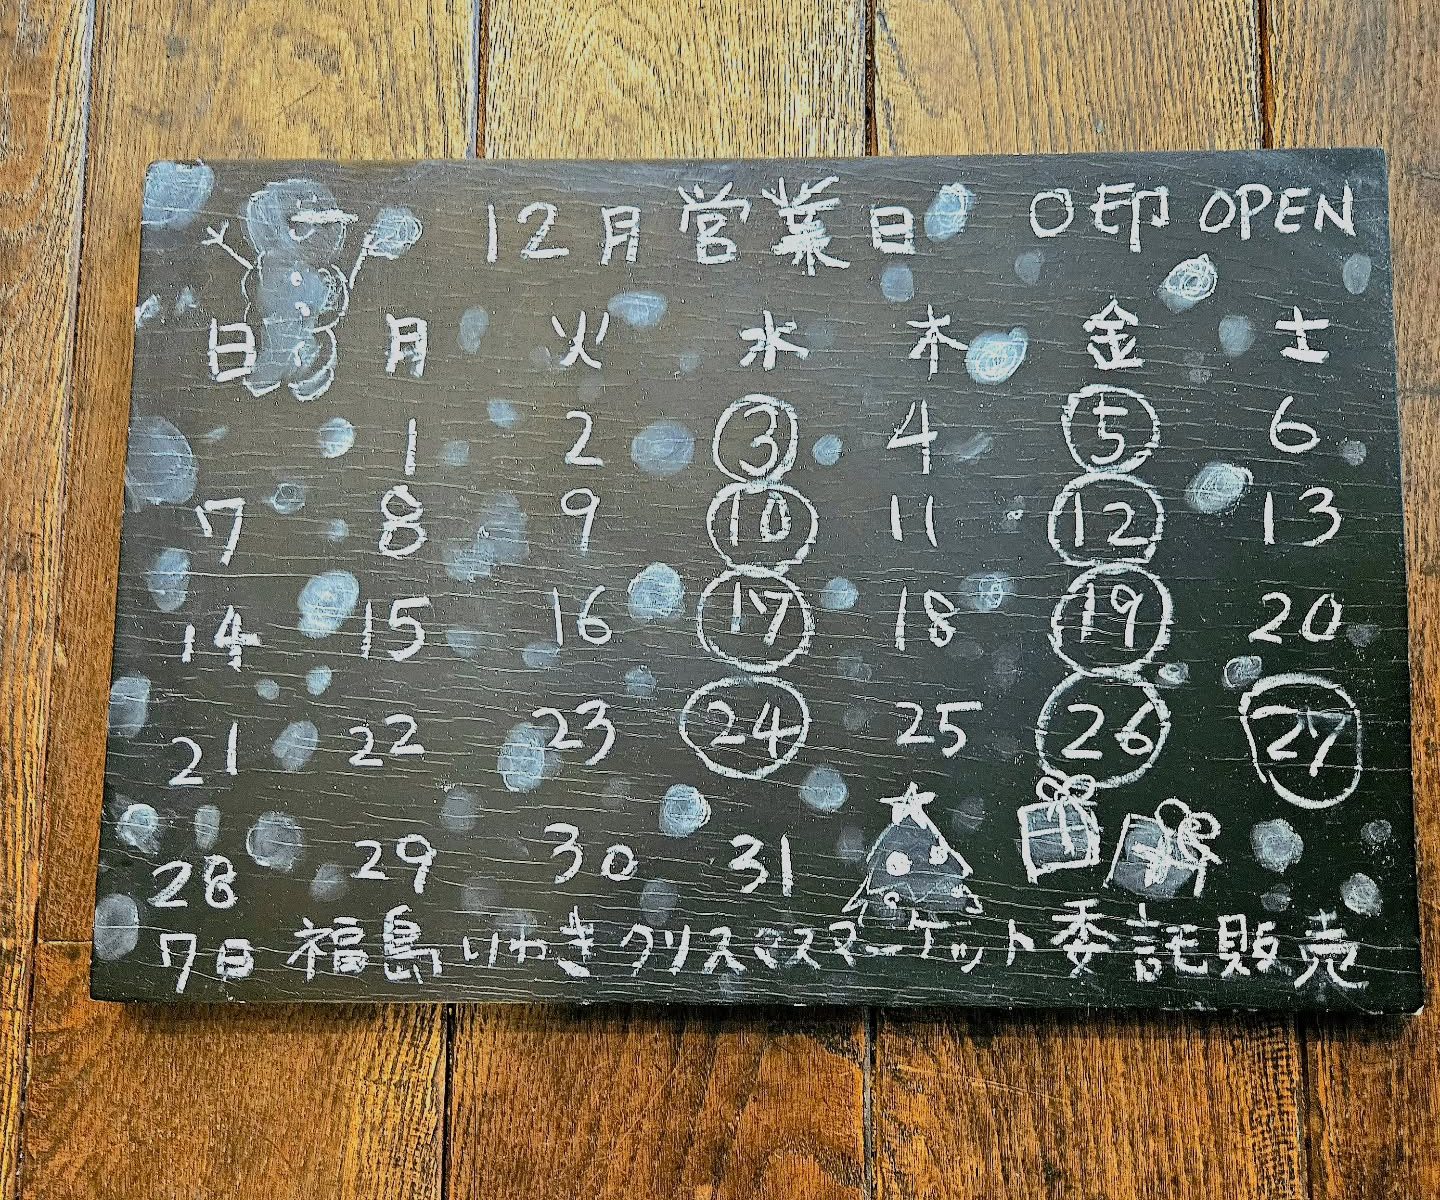 12月営業日 ○印 OPEN
日 月 火 水 木 金 土
1 2 3 4 5 6
7 8 9 10 11 12 13
14 15 16 17 18 19 20
21 22 23 24 25 26 27
28 29 30 31
7日 福島いわきクリスマスマーケット委託販売